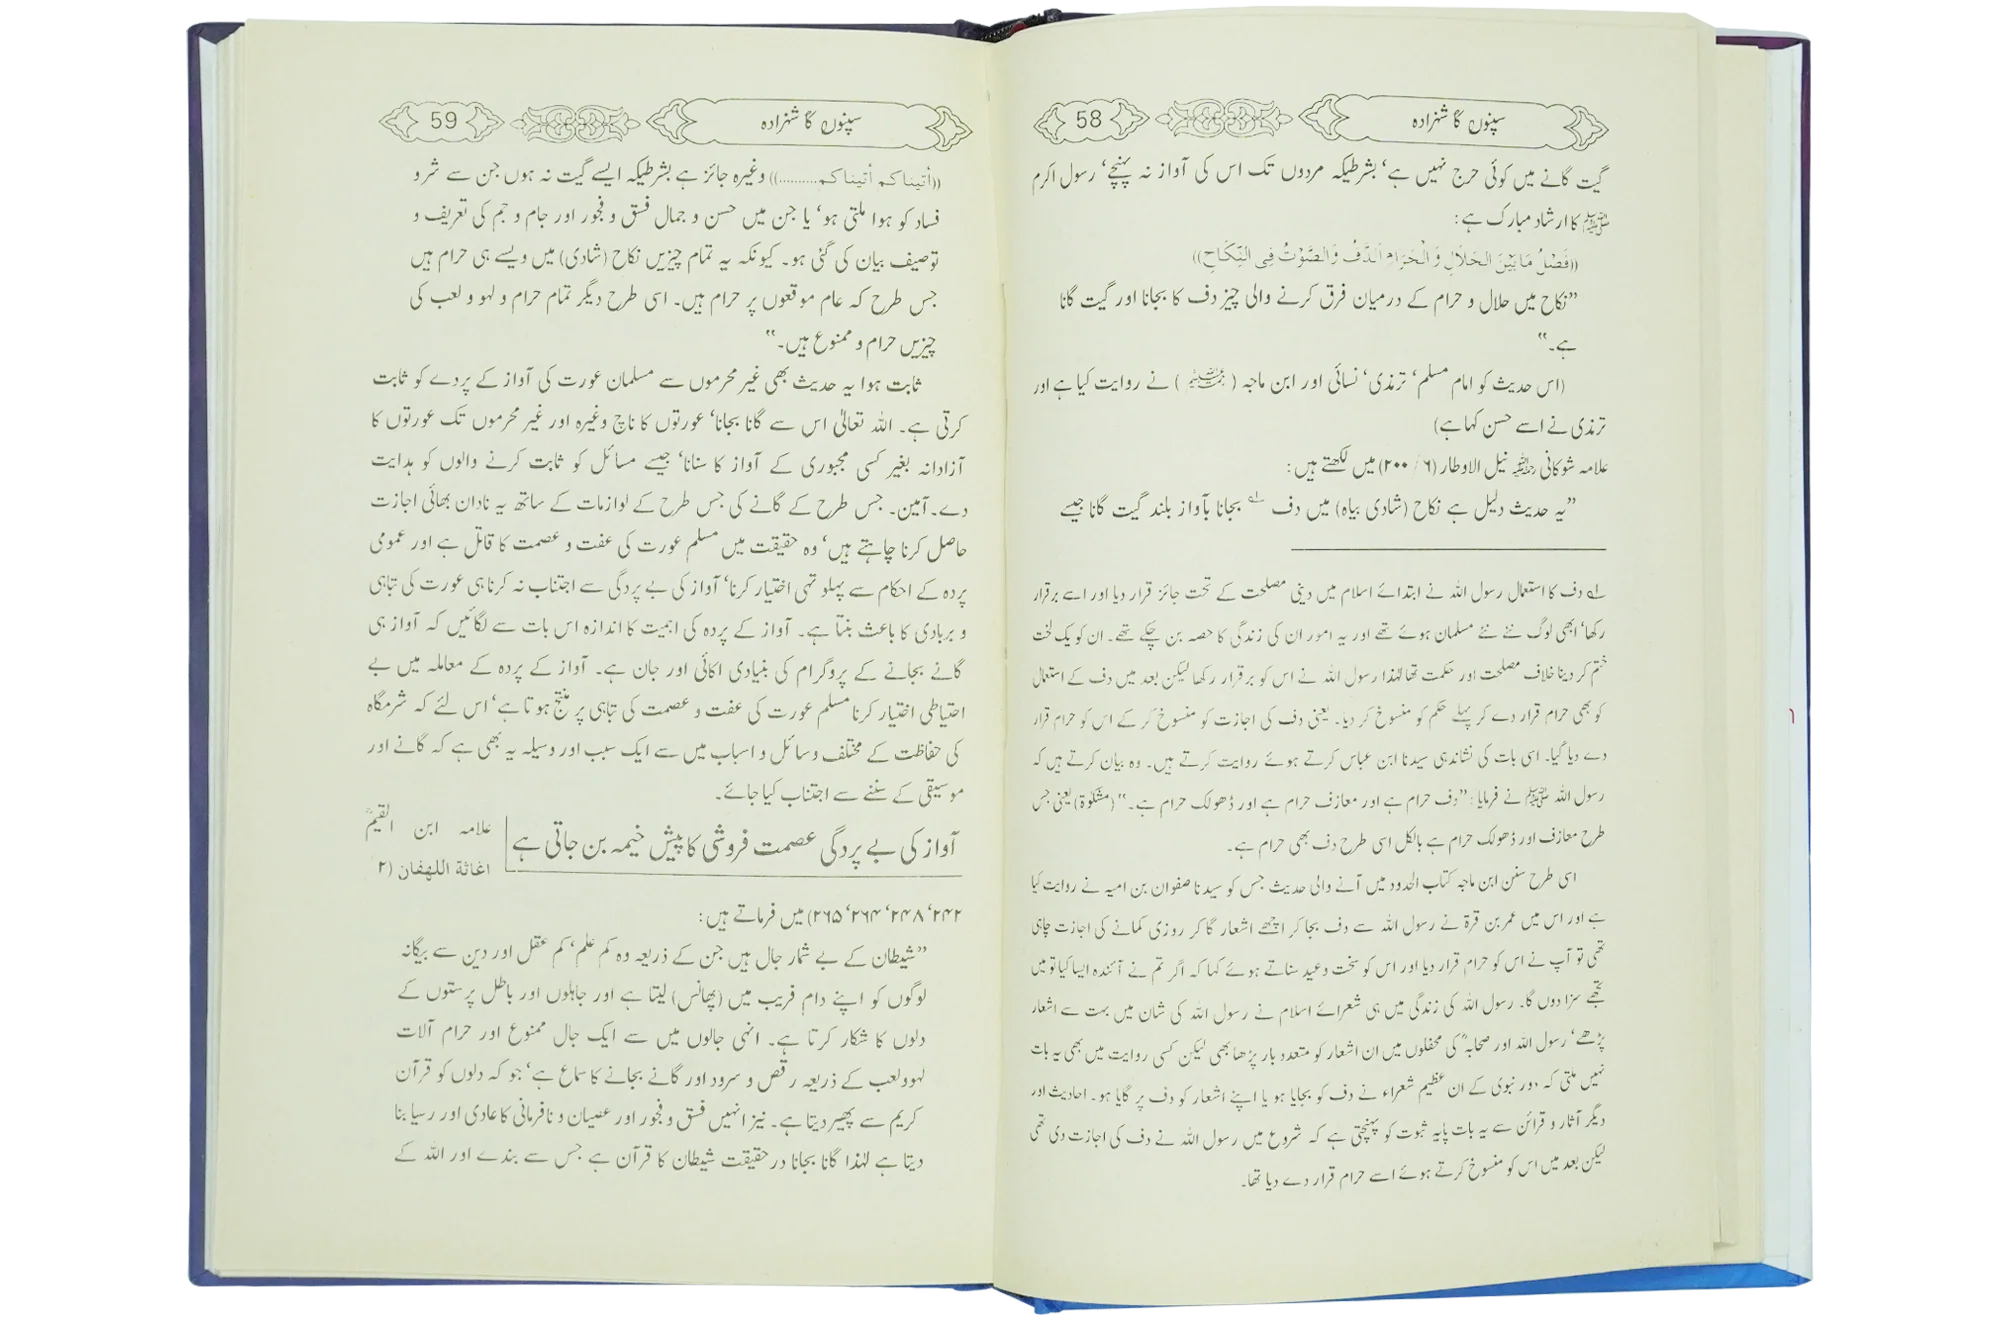 سپنوں کا شہزادہ
58
گیت گانے میں کوئی حرج نہیں ہے‘ بشرطیکہ مردوں تک اس کی آواز نہ پہنچے‘ رسول اکرم
ﷺ کا ارشاد مبارک ہے:
((فَصْلُ مَا بَيْنَ الْحَلَالِ وَالْحَرَامِ الدُّفُّ وَالصَّوْتُ فِي النِّكَاحِ))
”نکاح میں حلال و حرام کے درمیان فرق کرنے والی چیز دف کا بجانا اور گیت گانا
ہے۔“
(اس حدیث کو امام مسلم‘ ترمذی‘ نسائی اور ابن ماجہ ( ) نے روایت کیا ہے اور
ترمذی نے اسے حسن کہا ہے)
علامہ شوکانی نیل الاوطار (۶/ ۲۰۰) میں لکھتے ہیں:
”یہ حدیث دلیل ہے نکاح (شادی بیاہ) میں دف ؎۱ بجانا بآواز بلند گیت گانا جیسے
؎۱ دف کا استعمال رسول اللہ نے ابتدائے اسلام میں دینی مصلحت کے تحت جائز قرار دیا اور اسے برقرار
رکھا‘ ابھی لوگ نئے نئے مسلمان ہوئے تھے اور یہ امور ان کی زندگی کا حصہ بن چکے تھے۔ ان کو یک لخت
ختم کر دینا خلاف مصلحت اور حکمت تھا لہٰذا رسول اللہ نے اس کو برقرار رکھا لیکن بعد میں دف کے استعمال
کو بھی حرام قرار دے کر پہلے حکم کو منسوخ کر دیا۔ یعنی دف کی اجازت کو منسوخ کر کے اس کو حرام قرار
دے دیا گیا۔ اسی بات کی نشاندہی سیدنا ابن عباس کرتے ہوئے روایت کرتے ہیں۔ وہ بیان کرتے ہیں کہ
رسول اللہ ﷺ نے فرمایا: ”دف حرام ہے اور معازف حرام ہے اور ڈھولک حرام ہے۔“ (مشکوٰۃ) یعنی جس
طرح معازف اور ڈھولک حرام ہے بالکل اسی طرح دف بھی حرام ہے۔
اسی طرح سنن ابن ماجہ کتاب الحدود میں آنے والی حدیث جس کو سیدنا صفوان بن امیہ نے روایت کیا
ہے اور اس میں عمر بن قرۃ نے رسول اللہ سے دف بجا کر اچھے اشعار گا کر روزی کمانے کی اجازت چاہی
تھی تو آپ نے اس کو حرام قرار دیا اور اس کو سخت وعید سناتے ہوئے کہا کہ اگر تم نے آئندہ ایسا کیا تو میں
تجھے سزا دوں گا۔ رسول اللہ کی زندگی میں ہی شعرائے اسلام نے رسول اللہ کی شان میں بہت سے اشعار
پڑھے‘ رسول اللہ اور صحابہؓ کی محفلوں میں ان اشعار کو متعدد بار پڑھا بھی لیکن کسی روایت میں بھی یہ بات
نہیں ملتی کہ دور نبوی کے ان عظیم شعراء نے دف کو بجایا ہو یا اپنے اشعار کو دف پر گایا ہو۔ احادیث اور
دیگر آثار و قرائن سے یہ بات پایہ ثبوت کو پہنچتی ہے کہ شروع میں رسول اللہ نے دف کی اجازت دی تھی
لیکن بعد میں اس کو منسوخ کرتے ہوئے اسے حرام قرار دے دیا تھا۔
سپنوں کا شہزادہ
59
((أتيناكم أتيناكم..........)) وغیرہ جائز ہے بشرطیکہ ایسے گیت نہ ہوں جن سے شر و
فساد کو ہوا ملتی ہو‘ یا جن میں حسن و جمال فسق و فجور اور جام و جم کی تعریف و
توصیف بیان کی گئی ہو۔ کیونکہ یہ تمام چیزیں نکاح (شادی) میں ویسے ہی حرام ہیں
جس طرح کہ عام موقعوں پر حرام ہیں۔ اسی طرح دیگر تمام حرام و لہو و لعب کی
چیزیں حرام و ممنوع ہیں۔“
ثابت ہوا یہ حدیث بھی غیر محرموں سے مسلمان عورت کی آواز کے پردے کو ثابت
کرتی ہے۔ اللہ تعالیٰ اس سے گانا بجانا‘ عورتوں کا ناچ وغیرہ اور غیر محرموں تک عورتوں کا
آزادانہ بغیر کسی مجبوری کے آواز کا سنانا‘ جیسے مسائل کو ثابت کرنے والوں کو ہدایت
دے۔ آمین۔ جس طرح کے گانے کی جس طرح کے لوازمات کے ساتھ یہ نادان بھائی اجازت
حاصل کرنا چاہتے ہیں‘ وہ حقیقت میں مسلم عورت کی عفت و عصمت کا قاتل ہے اور عمومی
پردہ کے احکام سے پہلو تہی اختیار کرنا‘ آواز کی بے پردگی سے اجتناب نہ کرنا ہی عورت کی تباہی
و بربادی کا باعث بنتا ہے۔ آواز کے پردہ کی اہمیت کا اندازہ اس بات سے لگائیں کہ آواز ہی
گانے بجانے کے پروگرام کی بنیادی اکائی اور جان ہے۔ آواز کے پردہ کے معاملہ میں بے
احتیاطی اختیار کرنا مسلم عورت کی عفت و عصمت کی تباہی پر منتج ہوتا ہے‘ اس لئے کہ شرمگاہ
کی حفاظت کے مختلف وسائل و اسباب میں سے ایک سبب اور وسیلہ یہ بھی ہے کہ گانے اور
موسیقی کے سننے سے اجتناب کیا جائے۔
آواز کی بے پردگی عصمت فروشی کا پیش خیمہ بن جاتی ہے
علامہ ابن القیمؒ
اغاثة اللهفان (۲/
۲۴۲‘ ۲۴۸‘ ۲۶۴‘ ۲۶۵) میں فرماتے ہیں:
”شیطان کے بے شمار جال ہیں جن کے ذریعہ وہ کم علم‘ کم عقل اور دین سے بیگانہ
لوگوں کو اپنے دام فریب میں (پھانس) لیتا ہے اور جاہلوں اور باطل پرستوں کے
دلوں کا شکار کرتا ہے۔ انہی جالوں میں سے ایک جال ممنوع اور حرام آلات
لہوولعب کے ذریعہ رقص و سرود اور گانے بجانے کا سماع ہے‘ جو کہ دلوں کو قرآن
کریم سے پھیر دیتا ہے۔ نیز انہیں فسق و فجور اور عصیان و نافرمانی کا عادی اور رسیا بنا
دیتا ہے لہٰذا گانا بجانا درحقیقت شیطان کا قرآن ہے جس سے بندے اور اللہ کے